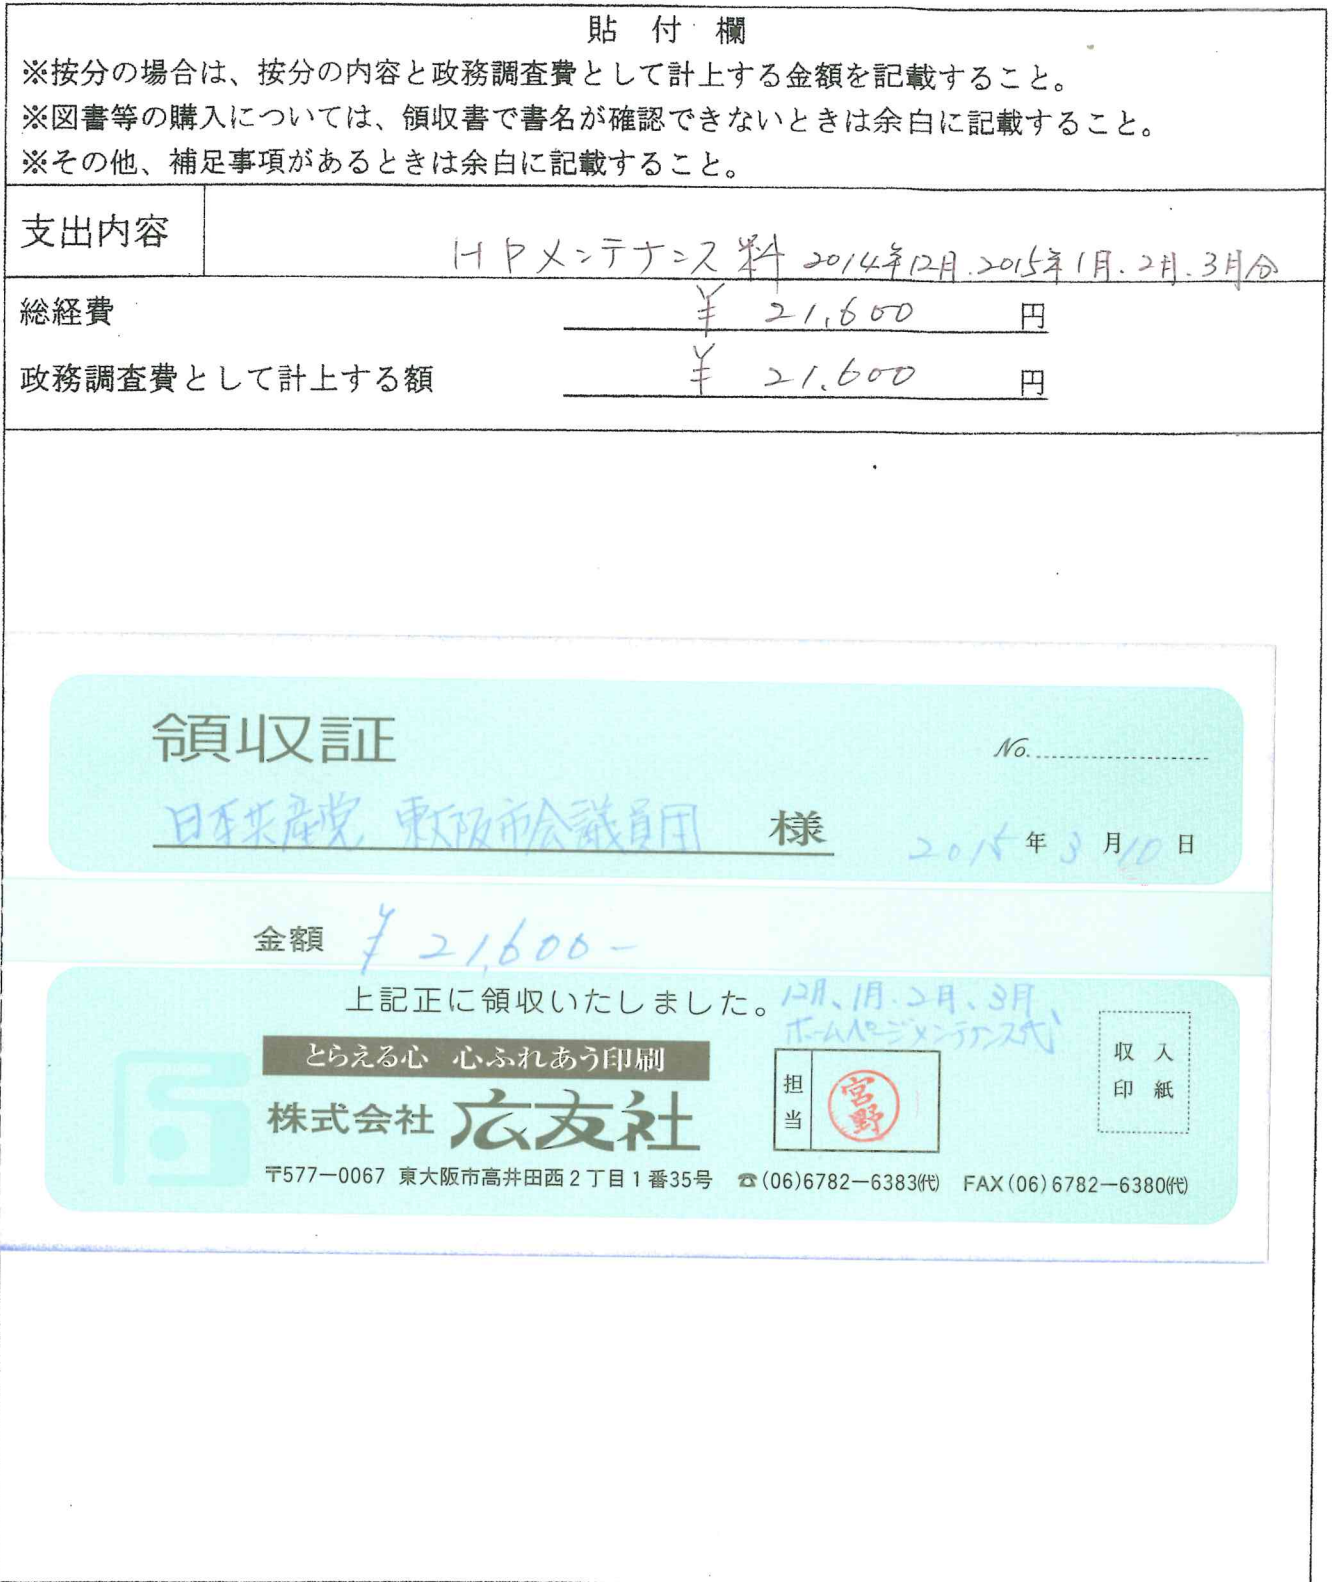 貼付欄
※按分の場合は、按分の内容と政務調査費として計上する金額を記載すること。
※図書等の購入については、領収書で書名が確認できないときは余白に記載すること。
※その他、補足事項があるときは余白に記載すること。
支出内容
HPメンテナンス料 2014年12月.2015年1月.2月.3月分
総経費 ¥ 21,600 円
政務調査費として計上する額 ¥ 21,600 円
領収証
No.
日本共産党 東大阪市会議員団 様
2015年3月10日
金額 ¥21,600-
上記正に領収いたしました。
12月、1月.2月、3月、
ホームページメンテナンス代
とらえる心 心ふれあう印刷
株式会社 広友社
担当
宮野
収入
印紙
〒577-0067 東大阪市高井田西2丁目1番35号 ☎(06)6782-6383㈹ FAX(06)6782-6380㈹